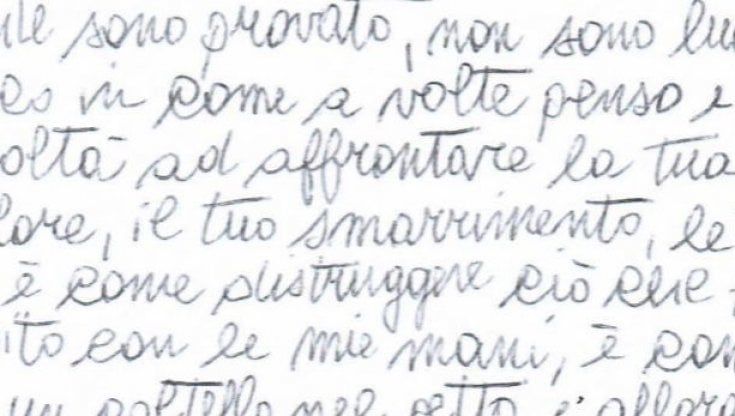 sono provato, non sono
in come a volte penso e
oltà ad affrontare la tua
lore, il tuo smarrimento, le
è come distruggere ciò che
ito con le mie mani, è com
un coltello nel petto e allora